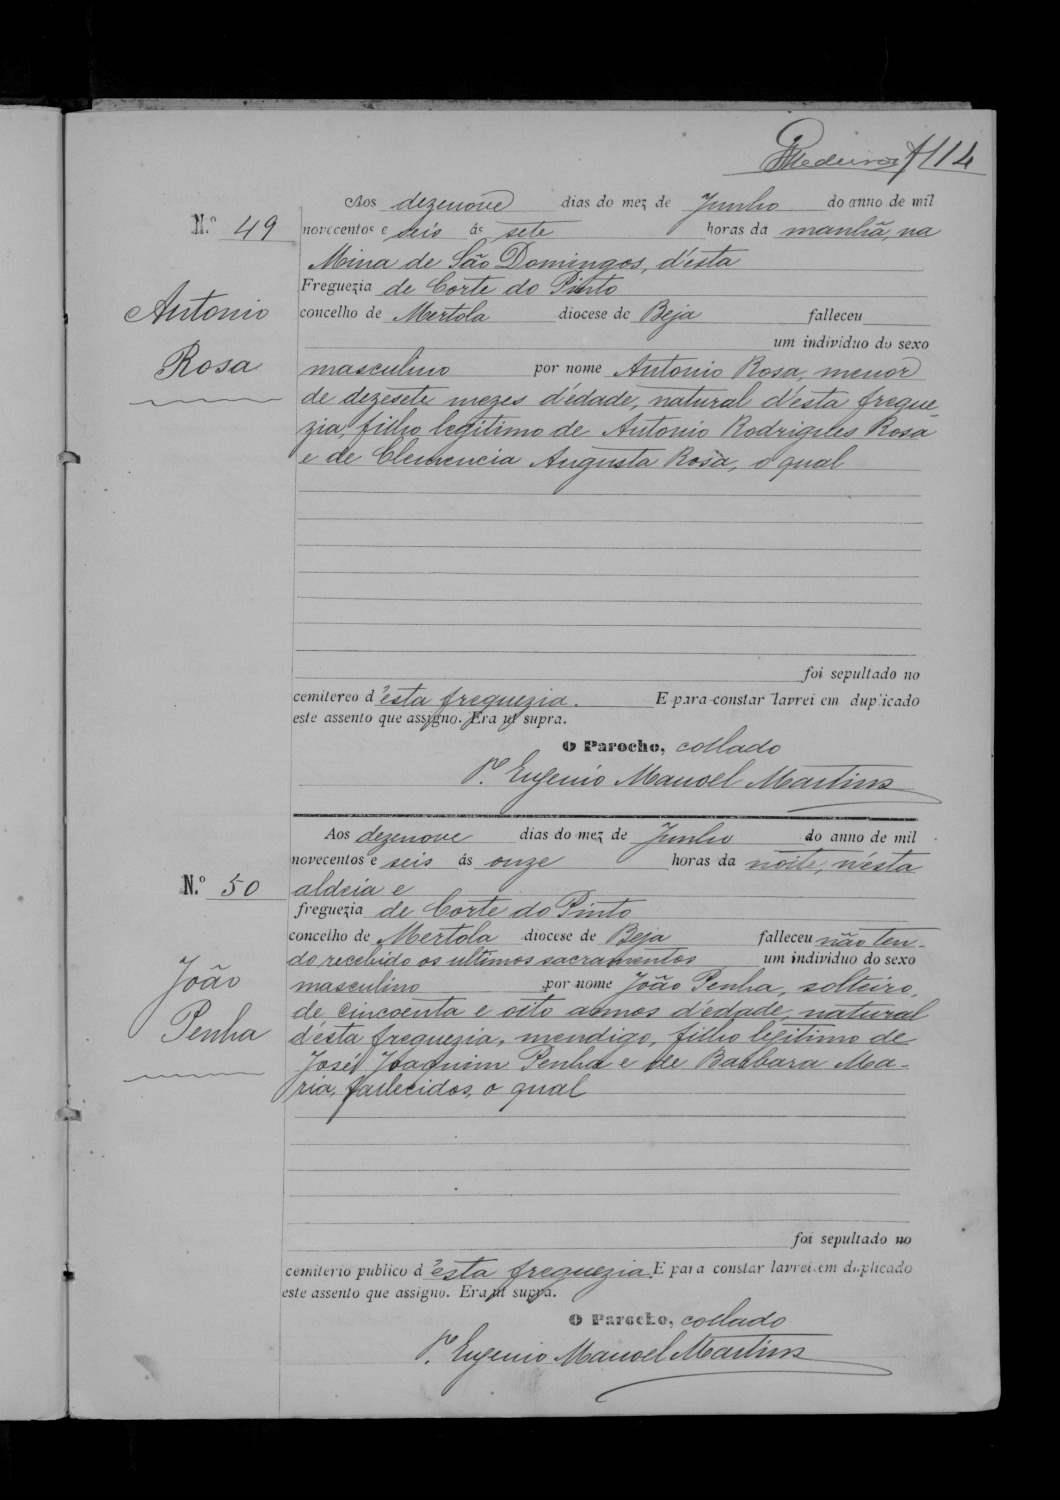 Medeiros 114
Aos dezenove dias do mez de Junho do anno de mil
N.º 49
novecentos e seis ás sete horas da manhã, na
Mina de São Domingos, d'ésta
Freguezia de Corte do Pinto
Antonio
concelho de Mertola diocese de Beja falleceu
um individuo do sexo
Rosa
masculino por nome Antonio Rosa, menor
de dezesete mezes d'édade, natural d'ésta fregue-
zia, filho legitimo de Antonio Rodrigues Rosa
e de Clemencia Augusta Rosa, o qual
foi sepultado no
cemitereo d'ésta freguezia. E para constar lavrei em duplicado
este assento que assigno. Era ut supra.
O Parocho, collado
P.e Eugenio Manoel Martins
Aos dezenove dias do mez de Junho do anno de mil
novecentos e seis ás onze horas da noite, n'ésta
N.º 50
aldeia e
freguezia de Corte do Pinto
concelho de Mertola diocese de Beja falleceu não ten-
do recebido os ultimos sacramentos um individuo do sexo
João
masculino por nome João Penha, solteiro,
de cincoenta e oito annos d'édade, natural
Penha
d'ésta freguezia, mendigo, filho legitimo de
José Joaquim Penha e de Barbara Ma-
ria, fallecidos, o qual
foi sepultado no
cemiterio publico d'ésta freguezia. E para constar lavrei em duplicado
este assento que assigno. Era ut supra.
O Parocho, collado
P.e Eugenio Manoel Martins